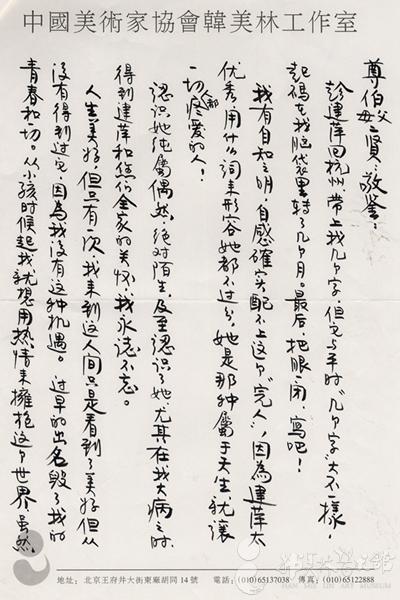 中國美術家協會韓美林工作室
尊伯父母二賢、敬鉴:
趁建萍回杭州、带上我几个字,但它与平时“几个字”大不一樣,
起碼在我脑袋里转了几个月。最后,把眼一闭,寫吧!
我有自知之明,自感確实配不上这个“完人”,因為建萍太
优秀,用什么词来形容她都不过分,她是那种属于天生就讓
一切人都疼爱的人!
認识她纯属偶然,绝对陌生,及至認识了她,尤其在我大病之时,
得到建萍和您们全家的关怀,我永远不忘。
人生美好,但只有一次,我来到这人间只是看到了美好但从
没有得到过它,因為我没有这种机遇。过早的出名毁了我的
青春和一切。从小孩时候起我就想用热情来擁抱这个世界,虽然
地址: 北京王府井大街東廠胡同14號 電話:(010)65137038 傳真:(010)65122888
韩美林艺术馆
HAN MEI LIN ART MUSEUM